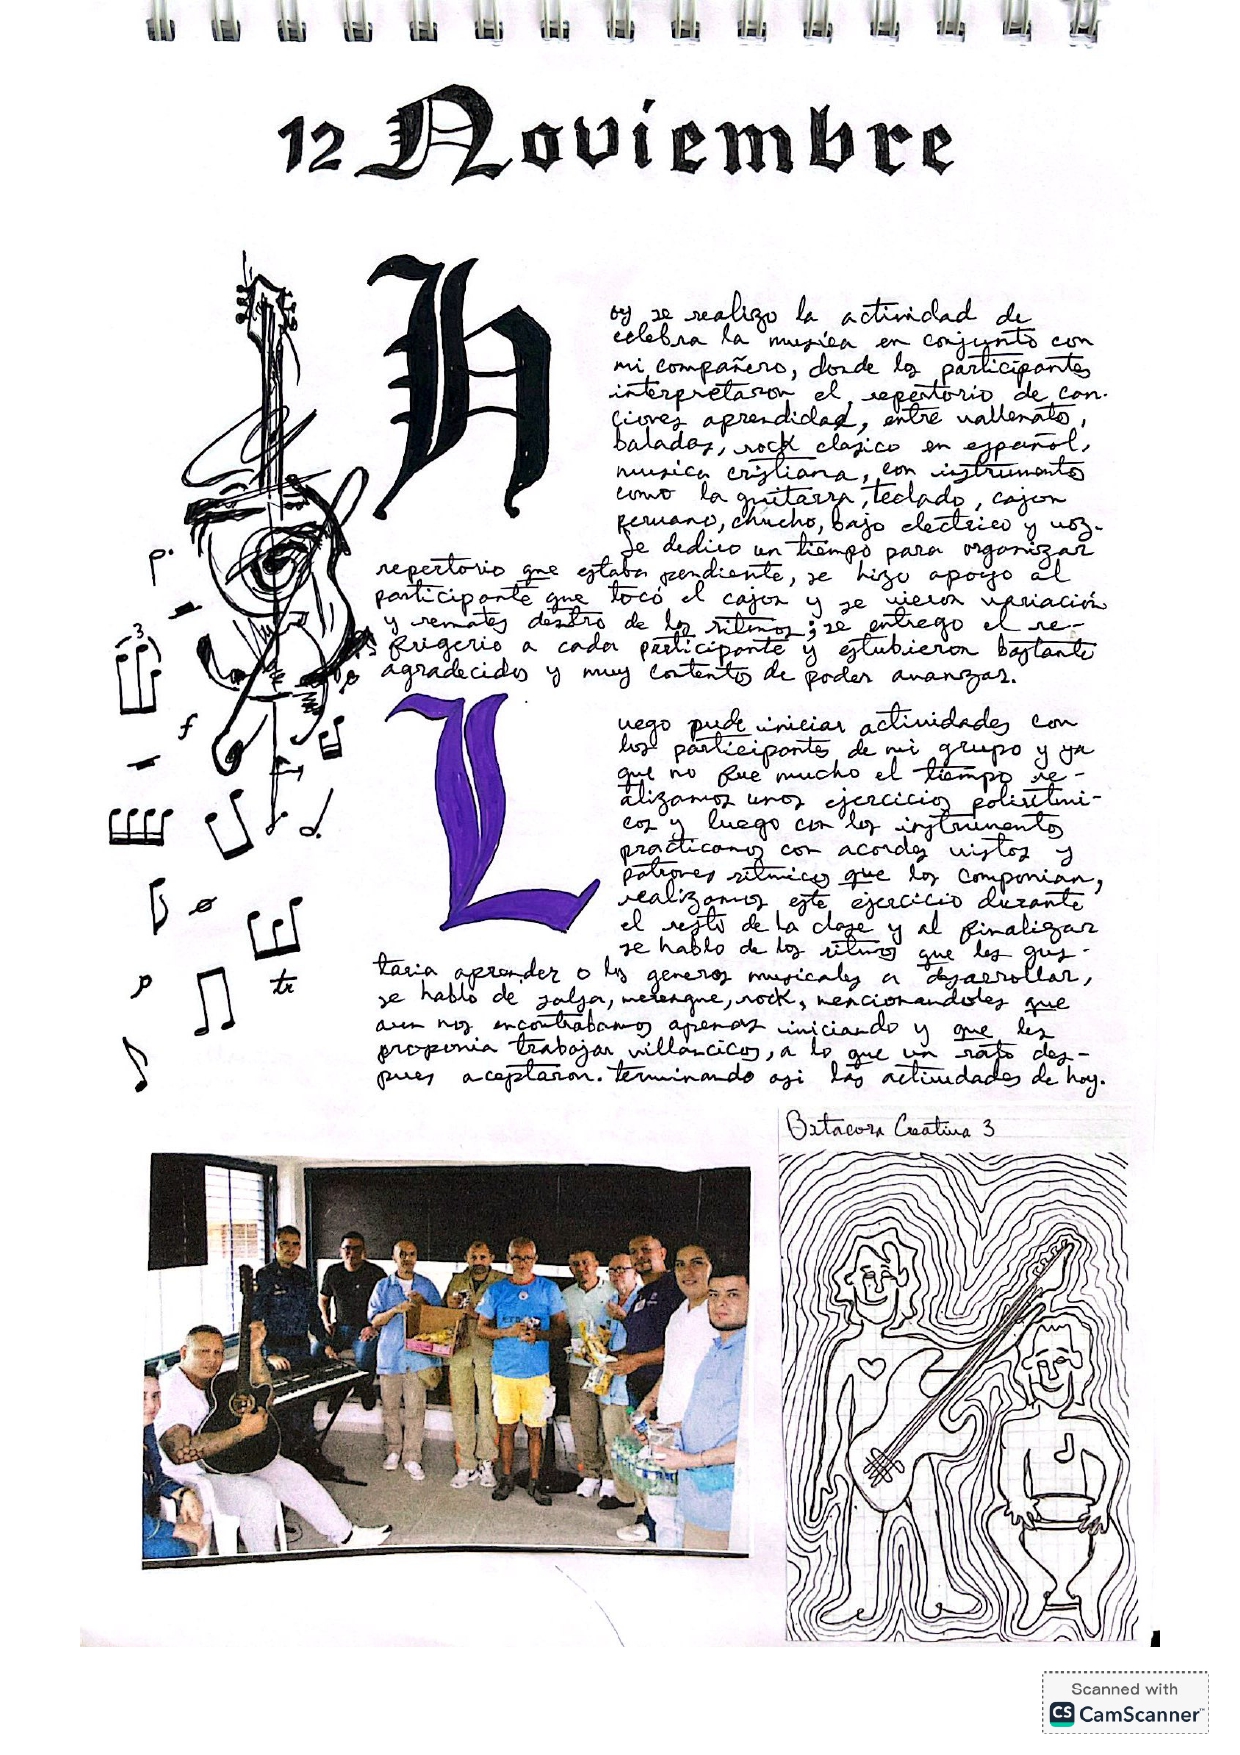 12 Noviembre
Hoy se realizo la actividad de
celebra la musica en conjunto con
mi compañero, donde los participantes
interpretaron el repertorio de can-
ciones aprendidas, entre vallenato,
baladas, rock clasico en español,
musica cristiana, con instrumentos
como la guitarra, teclado, cajon
peruano, chucho, bajo electrico y voz.
Se dedico un tiempo para organizar
repertorio que estaba pendiente, se hizo apoyo al
participante que tocó el cajon y se vieron variación
y remates dentro de los ritmos; se entrego el re-
frigerio a cada participante y estubieron bastante
agradecidos y muy contentos de poder avanzar.
Luego pude iniciar actividades con
los participantes de mi grupo y ya
que no fue mucho el tiempo re-
alizamos unos ejercicios poliritmi-
cos y luego con los instrumentos
practicamos con acordes vistos y
patrones ritmicos que los componian,
realizamos este ejercicio durante
el resto de la clase y al finalizar
se hablo de los ritmos que les gus-
taria aprender o los generos musicales a desarrollar,
se habló de salsa, merengue, rock, mencionandoles que
aun nos encontrabamos apenas iniciando y que les
proponia trabajar villancicos, a lo que un rato des-
pues aceptaron. terminando asi las actividades de hoy.
Bitacora Creativa 3
3
p
f
p
tr
Scanned with
CS CamScanner